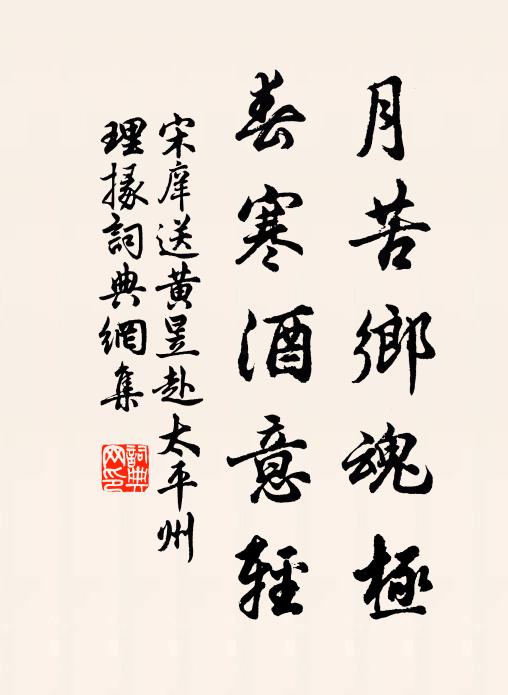 月苦鄉魂極
春寒酒意輕
宋庠送黃昱赴太平州
理掾詞典網集
詞典网印